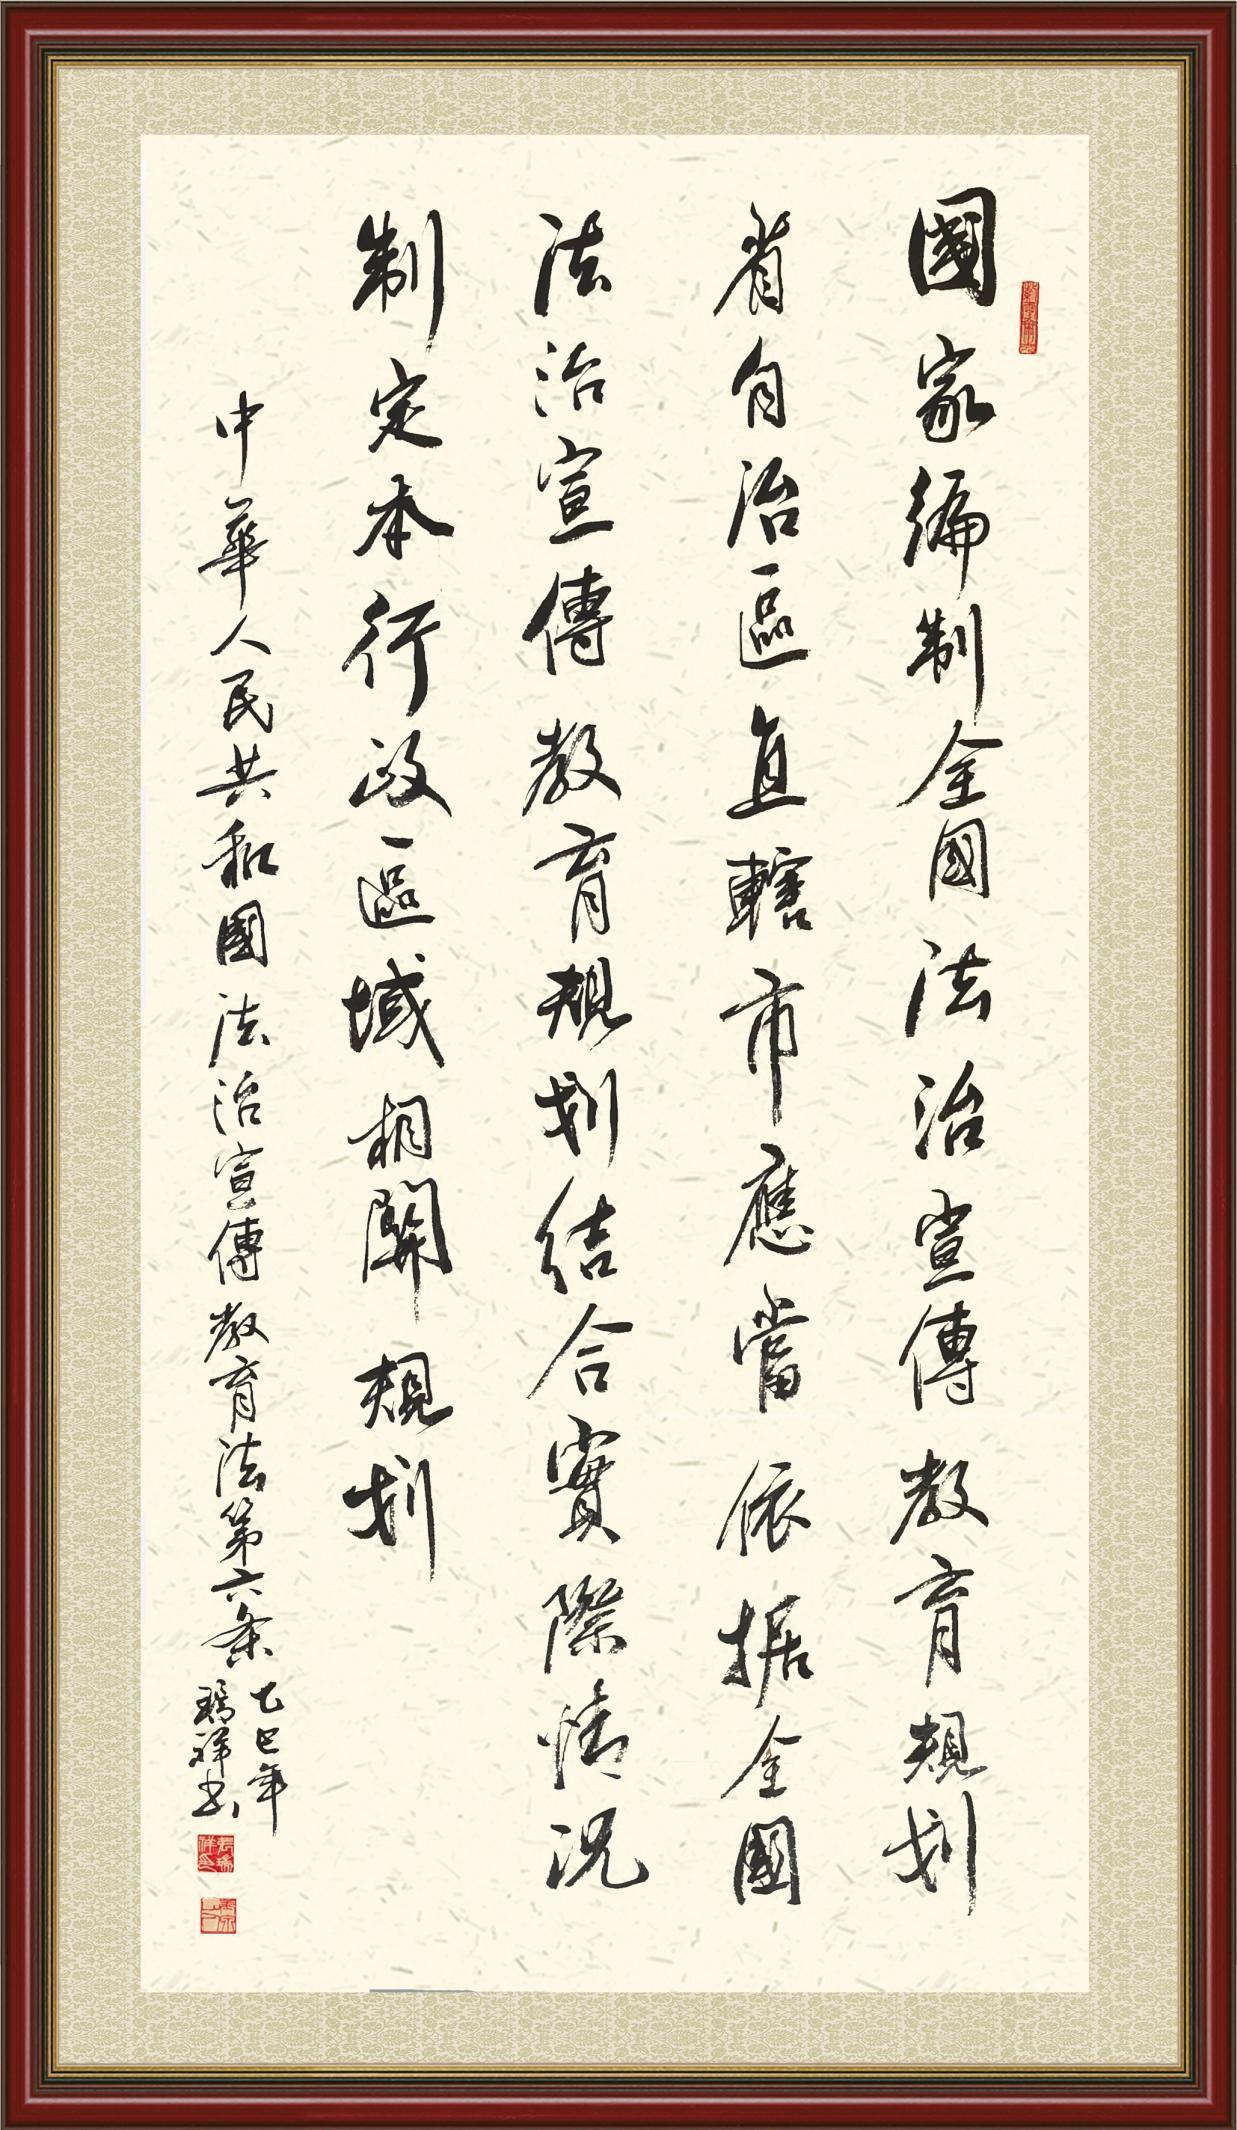 國家編制全國法治宣傳教育規划
省自治區直轄市應當依据全國
法治宣傳教育規划结合實際情况
制定本行政區域相關規划
中華人民共和國法治宣傳教育法第六条
乙巳年
瑞祥书